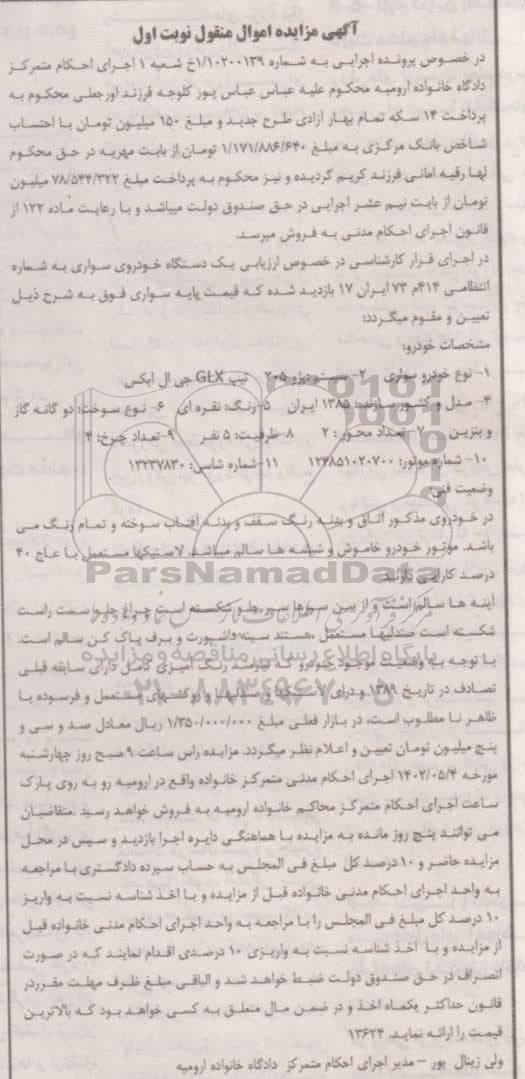 آگهی مزایده اموال منقول نوبت اول
در خصوص پرونده اجرایی به شماره ۱/۱۰۲۰۰۱۳۹خ شعبه ۱ اجرای احکام متمرکز
دادگاه خانواده ارومیه محکوم علیه عباس عباس پور کلوچه فرزند اورجعلی محکوم به
پرداخت ۱۴ سکه تمام بهار آزادی طرح جدید و مبلغ ۱۵۰ میلیون تومان با احتساب
شاخص بانک مرکزی به مبلغ ۱/۱۷۱/۸۸۶/۶۴۰ تومان از بابت مهریه در حق محکوم
لها رقیه امانی فرزند کریم گردیده و نیز محکوم به پرداخت مبلغ ۷۸/۵۴۴/۳۲۲ میلیون
تومان از بابت نیم عشر اجرایی در حق صندوق دولت میباشد و با رعایت ماده ۱۲۲ از
قانون اجرای احکام مدنی به فروش میرسد.
در اجرای قرار کارشناسی در خصوص ارزیابی یک دستگاه خودروی سواری به شماره
انتظامی ۴۱۴م ۷۳ ایران ۱۷ بازدید شده که قیمت پایه سواری فوق به شرح ذیل
تعیین و مقوم میگردد:
مشخصات خودرو:
۱- نوع خودرو سواری ۲- سیستم پژو ۲۰۵ تیپ GLX جی ال ایکس
۴- مدل و کشور سازنده: ۱۳۸۵ ایران ۵-رنگ: نقره ای ۶- نوع سوخت: دو گانه گاز
و بنزین ۷- تعداد محور: ۲ ۸- ظرفیت: ۵ نفر ۹-تعداد چرخ: ۴
۱۰- شماره موتور: ۱۲۴۸۵۱۰۲۰۷۰۰ ۱۱-شماره شاسی: ۱۳۲۳۷۸۳۰
وضعیت فنی:
در خودروی مذکور اتاق و بدنه رنگ سقف و بدنه آفتاب سوخته و تمام رنگ می
باشد. موتور خودرو خاموش و شیشه ها سالم میباشد. لاستیکها مستعمل با عاج ۴۰
درصد کارایی دارند.
آینه ها سالم است و از بین سپرها سپر جلو شکسته است چراغ جلو سمت راست
شکسته است صندلیها مستعمل هستند سینه داشبورت و برف پاک کن سالم است.
با توجه به وضعیت موجود خودرو که نیازمند رنگ آمیزی کامل دارای سابقه قبلی
تصادف در تاریخ ۱۳۸۹ و درای لاستیکها و صندلیها و روکشهای مستعمل و فرسوده با
ظاهر نا مطلوب است، در بازار فعلی مبلغ ۱/۳۵۰/۰۰۰/۰۰۰ ریال معادل صد و سی و
پنج میلیون تومان تعیین و اعلام نظر میگردد. مزایده راس ساعت ۹ صبح روز چهارشنبه
مورخه ۱۴۰۲/۰۵/۴ اجرای احکام مدنی متمرکز خانواده واقع در ارومیه رو به روی پارک
ساعت اجرای احکام متمرکز محاکم خانواده ارومیه به فروش خواهد رسید .متقاضیان
می توانند پنج روز مانده به مزایده با هماهنگی دایره اجرا بازدید و سپس در محل
مزایده حاضر و ۱۰ درصد کل مبلغ فی المجلس به حساب سپرده دادگستری با مراجعه
به واحد اجرای احکام مدنی خانواده قبل از مزایده و با اخذ شناسه نسبت به واریز
۱۰ درصد کل مبلغ فی المجلس را با مراجعه به واحد اجرای احکام مدنی خانواده قبل
از مزایده و با اخذ شناسه نسبت به واریزی ۱۰ درصدی اقدام نمایند که در صورت
انصراف در حق صندوق دولت ضبط خواهد شد و الباقی مبلغ ظرف مهلت مقرردر
قانون حداکثر یکماه اخذ و در ضمن مال متعلق به کسی خواهد بود که بالاترین
قیمت را ارائه نماید. ۱۳۶۲۴
ولی زینال پور - مدیر اجرای احکام متمرکز دادگاه خانواده ارومیه
ParsNamadData
پایگاه اطلاع رسانی مناقصه و مزایده
۰۲۱-۸۸۳۴۹۶۷۰-۵